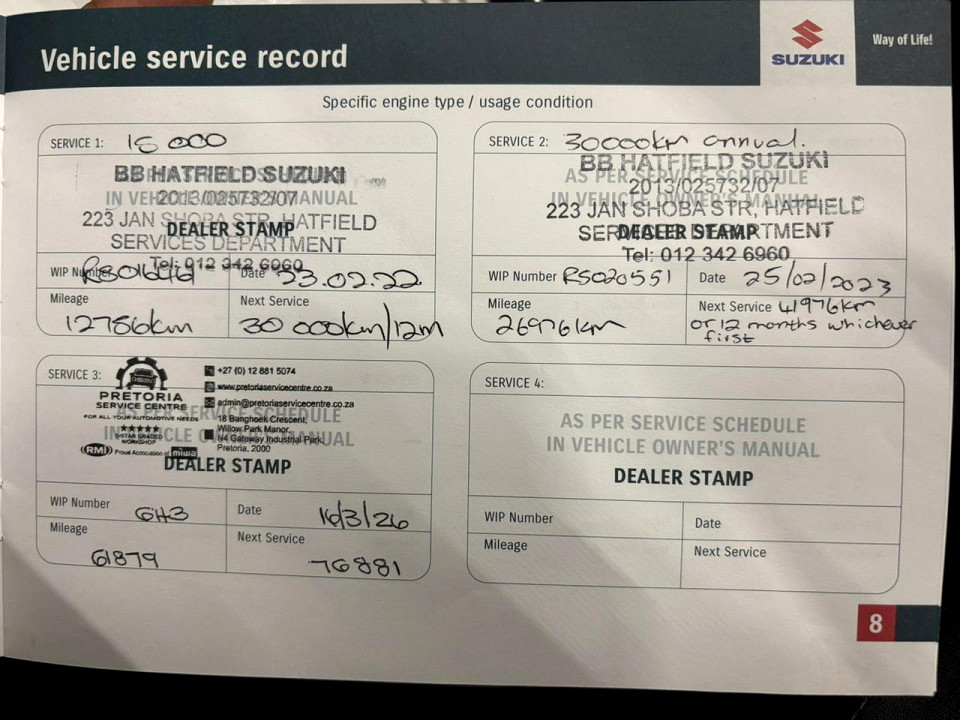 Vehicle service record
SUZUKI
Way of Life!
Specific engine type / usage condition
SERVICE 1: 15 000
BB HATFIELD SUZUKI
2013/025732/07
IN VEHICLE OWNER'S MANUAL
223 JAN SHOBA STR, HATFIELD
DEALER STAMP
SERVICES DEPARTMENT
Tel: 012 342 6960
WIP Number
Date 23.02.22
Mileage
12786km
Next Service
30 000km/12m
SERVICE 2: 30000km annual.
BB HATFIELD SUZUKI
AS PER SERVICE SCHEDULE
2013/025732/07
IN VEHICLE OWNER'S MANUAL
223 JAN SHOBA STR, HATFIELD
DEALER STAMP
SERVICES DEPARTMENT
Tel: 012 342 6960
WIP Number RS020551
Date 25/02/2023
Mileage
26976km
Next Service 41976km
or 12 months whichever
first
SERVICE 3:
PRETORIA
SERVICE CENTRE
FOR ALL YOUR AUTOMOTIVE NEEDS
5-STAR GRADED
WORKSHOP
RMI Proud Accociation of miwa
+27 (0) 12 881 5074
www.pretoriaservicecentre.co.za
admin@pretoriaservicecentre.co.za
18 Banghoek Crescent,
Willow Park Manor,
N4 Gateway Industrial Park,
Pretoria, 2000
AS PER SERVICE SCHEDULE
IN VEHICLE OWNER'S MANUAL
DEALER STAMP
WIP Number 6H3
Date 16/3/26
Mileage
61879
Next Service
76881
SERVICE 4:
AS PER SERVICE SCHEDULE
IN VEHICLE OWNER'S MANUAL
DEALER STAMP
WIP Number
Date
Mileage
Next Service
8